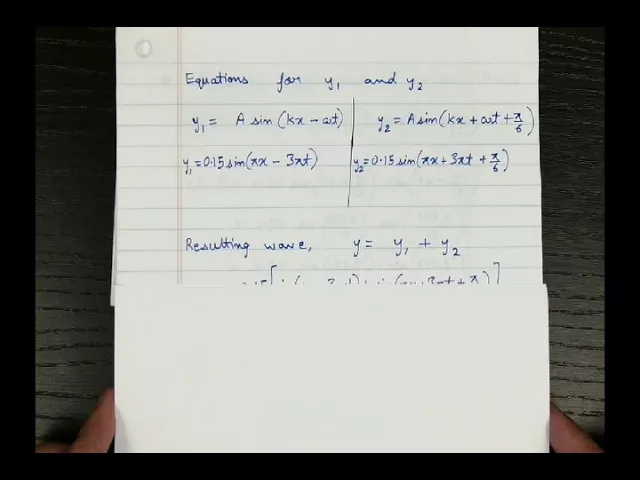 Equations for y₁ and y₂
y₁ = A sin (kx - ωt)
y₂ = A sin (kx + ωt + π/6)
y₁ = 0.15 sin (πx - 3πt)
y₂ = 0.15 sin (πx + 3πt + π/6)
Resulting wave, y = y₁ + y₂